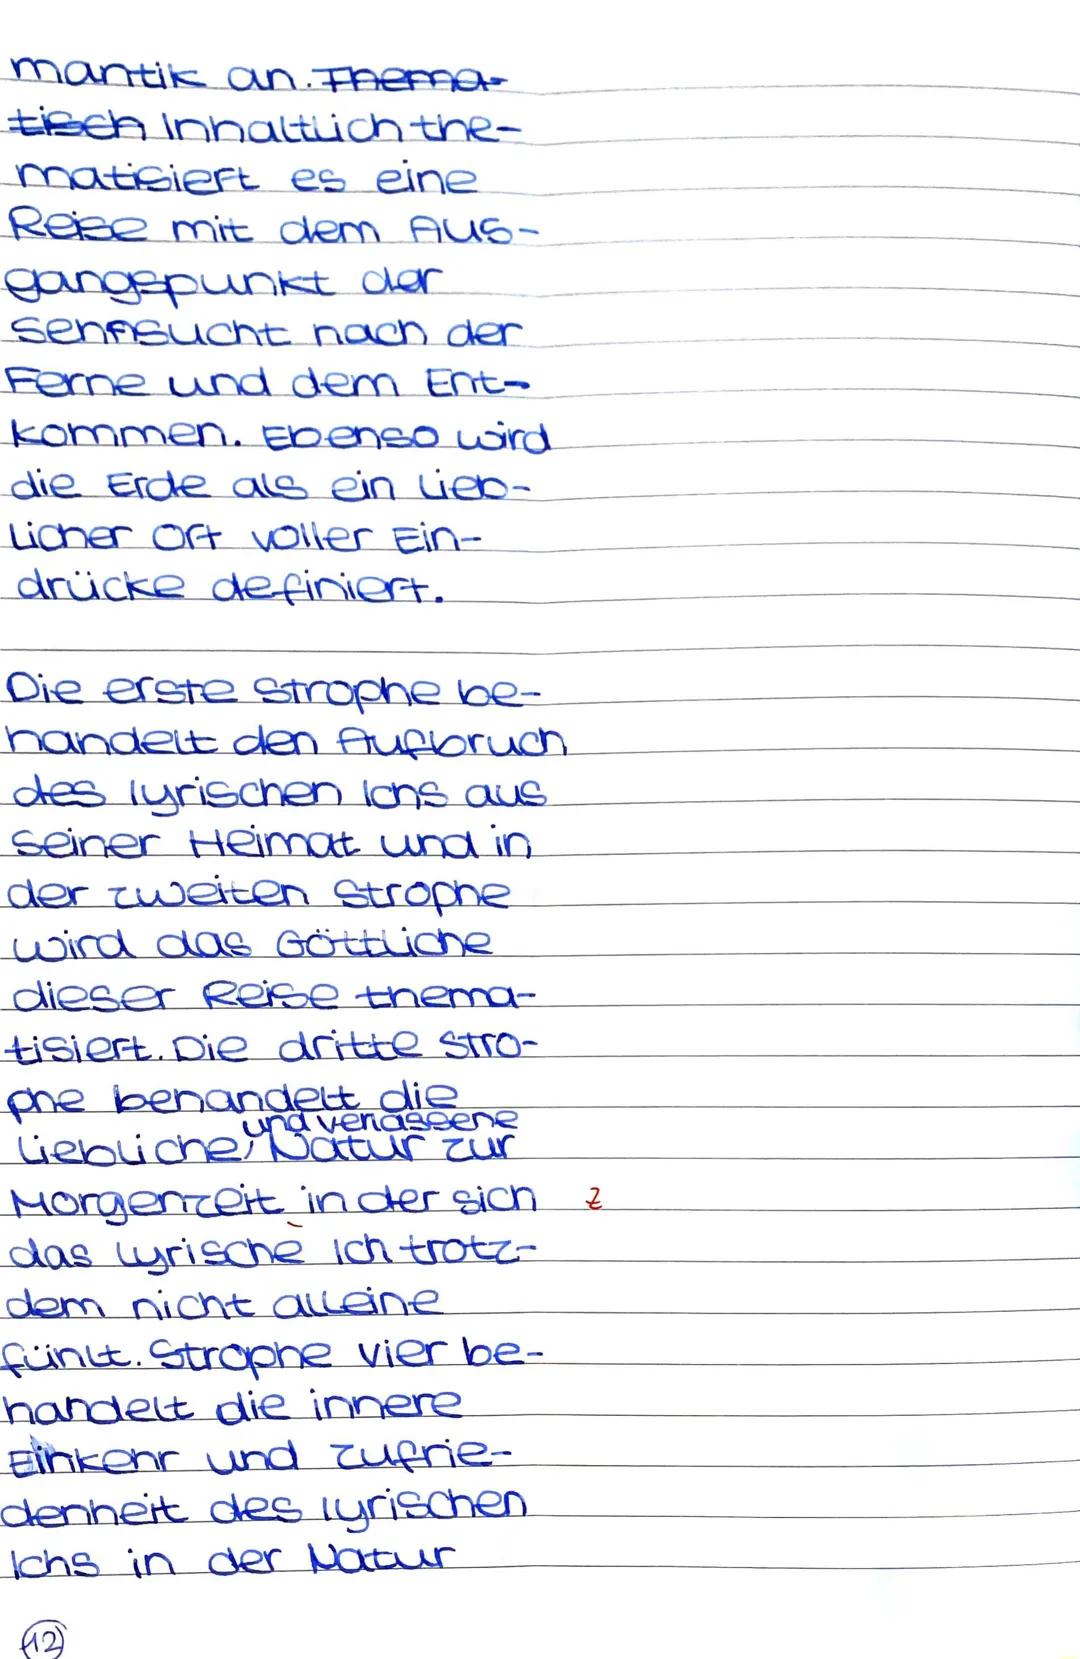 mantik an. Thema-
tisch Inhaltlich the-
matisiert es eine
Reise mit dem Aus-
gangspunkt der
Sehnsucht nach der
Ferne und dem Ent-
kommen. Ebenso wird
die Erde als ein lieb-
licher Ort voller Ein-
drücke definiert.
Die erste Strophe be-
handelt den Aufbruch
des lyrischen Ichs aus
seiner Heimat und in
der zweiten Strophe
wird das Göttliche
dieser Reise thema-
tisiert. Die dritte Stro-
phe behandelt die
und verlassene
liebliche Natur zur
Morgenzeit in der sich Z
das lyrische Ich trotz-
dem nicht alleine
fühlt. Strophe vier be-
handelt die innere
Einkehr und Zufrie-
denheit des lyrischen
Ichs in der Natur
12